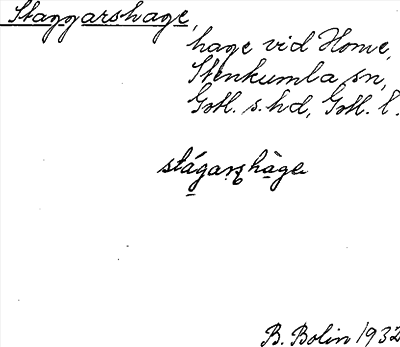 Staggarshage,
hage vid Home,
Stenkumla sn,
Gotl. s. hd, Gotl. l.
stágarshàge
B. Bolin 1932